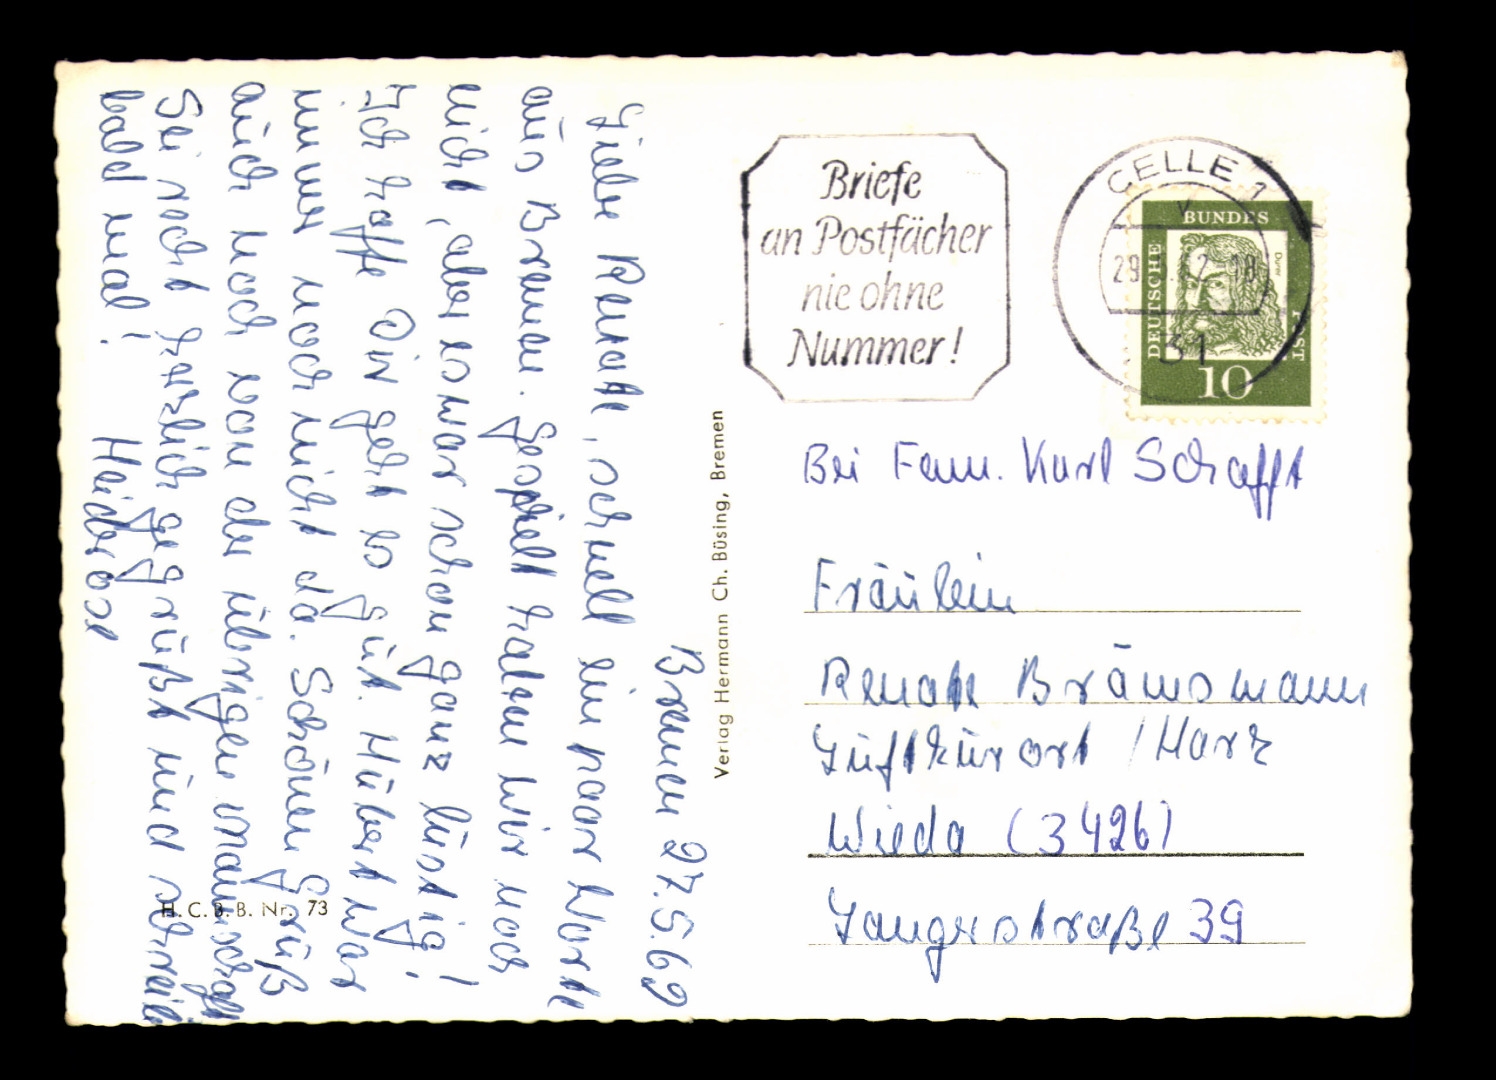 Bremen 27.5.62
Liebe Renate, schnell ein paar Worte
aus Bremen. Gespielt haben wir noch
nicht, aber es war schon ganz lustig!
Ich hoffe Dir geht es gut. Hubert war
immer noch nicht da. Schönen Gruß
auch noch von der übrigen Mannschaft
Sei recht herzlich gegrüßt und schreib
bald mal!
Heiderose
H.C.B.B. Nr. 73
Verlag Hermann Ch. Büsing, Bremen
Briefe
an Postfächer
nie ohne
Nummer!
CELLE 1
31
DEUTSCHE BUNDESPOST
Dürer
10
Bei Fam. Karl Schafft
Fräulein
Renate Brämsmann
Luftkurort / Harz
Wieda (3426)
Langestraße 39